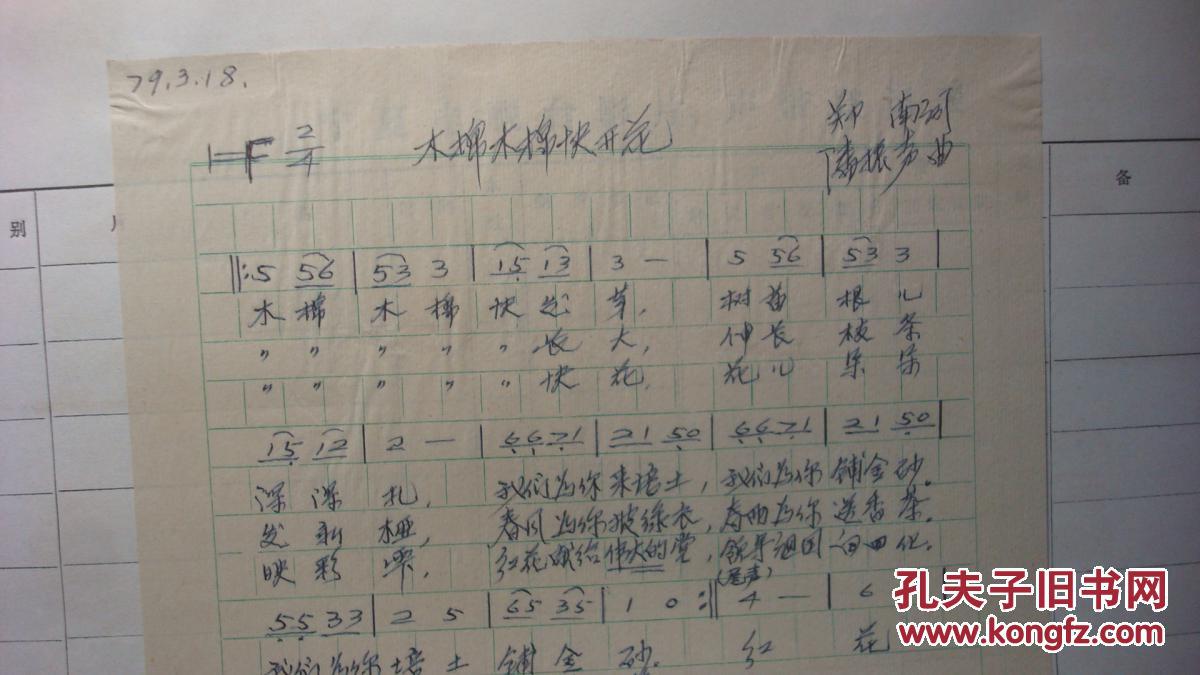 79.3.18.
1=F 2/4 木棉木棉快开花 郑南词
曲
别
备
‖:5 56 | 53 3 | 15 13 | 3 — | 5 56 | 53 3 |
木棉 木棉 快发芽, 树苗 根儿
〃 〃 〃 〃 〃 长大, 伸长 枝条
〃 〃 〃 〃 〃 快花, 花儿 朵朵
15 12 | 2 — | 6671 | 21 50 | 6671 | 21 50 |
深深 扎, 我们为你来培土, 我们为你铺金砂。
发新桠, 春风为你披绿衣, 春雨为你送香茶。
映彩 红花献给伟大的党, 领导祖国向四化。
(尾声)
55 33 | 2 5 | 65 35 | 1 0 :‖ 4 — | 6
我们为你培土 铺金砂. 红 花
孔夫子旧书网
www.kongfz.com